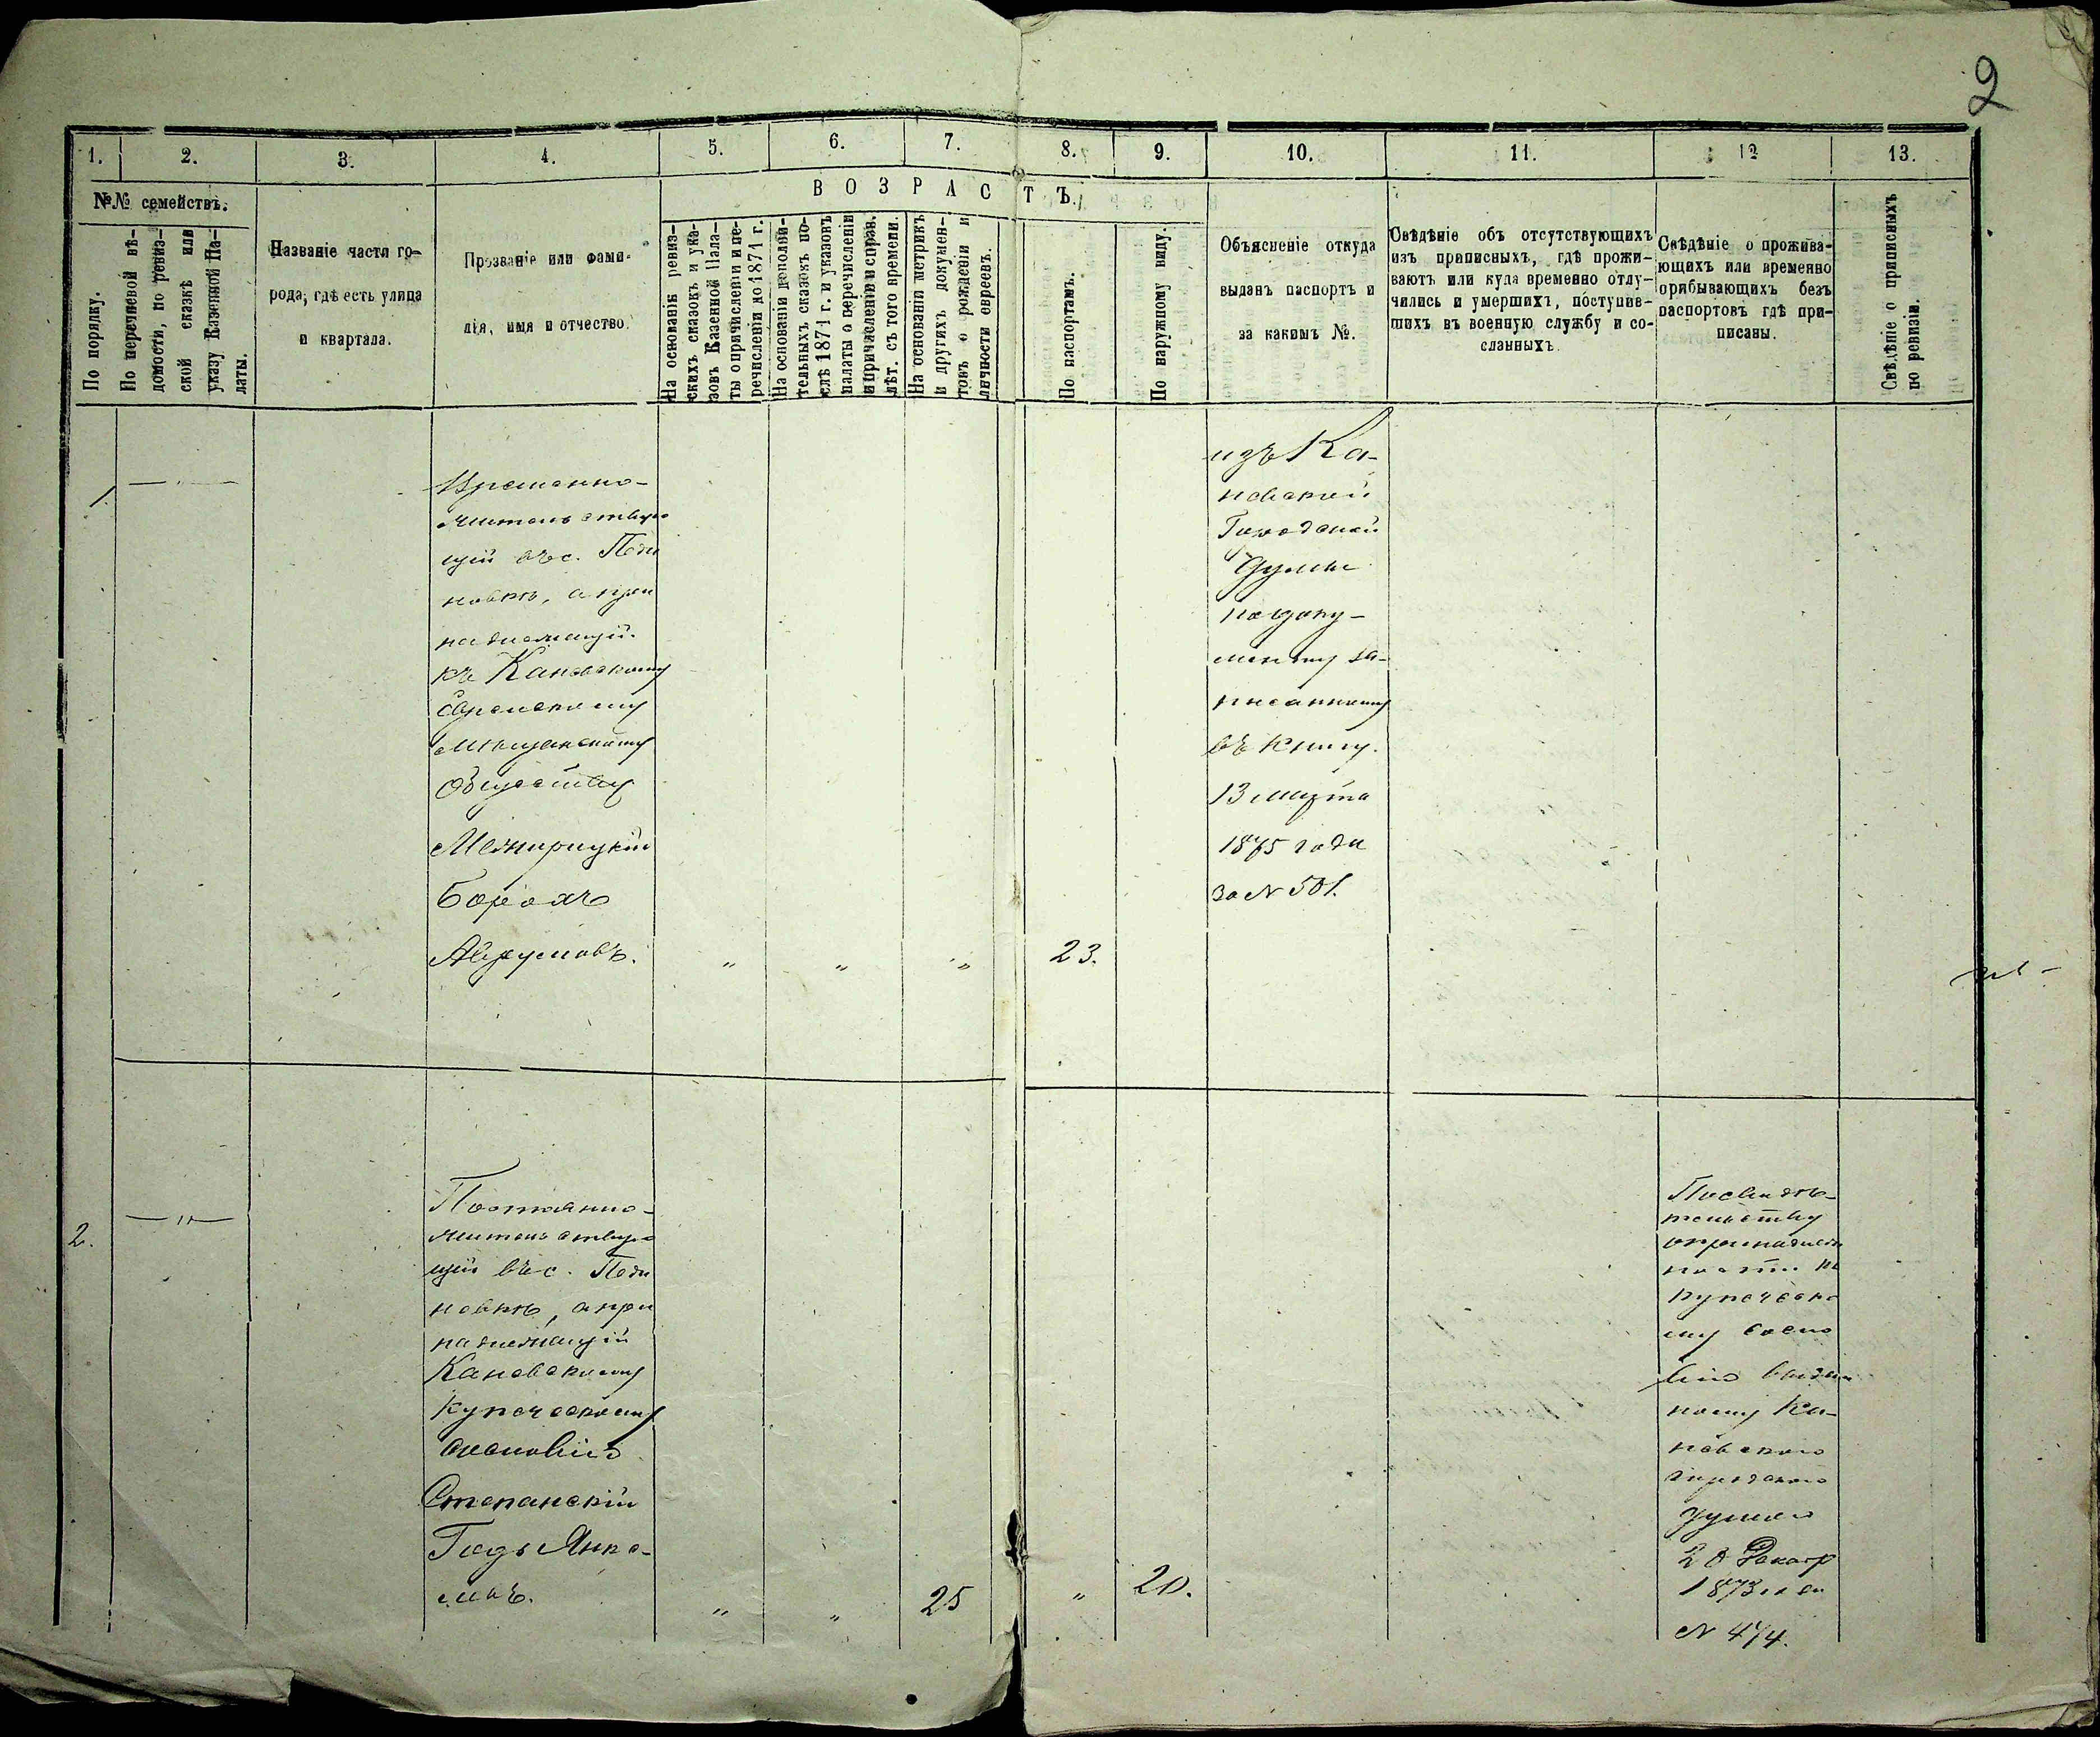 2
1.
2.
3.
4.
5.
6.
7.
8.
9.
10.
11.
12
13.
№№ семействъ.
По порядку.
По перечневой вѣ-
домости, по ревиз-
ской сказкѣ или
указу Казенной Па-
латы.
Названіе части го-
рода, гдѣ есть улица
и квартала.
Прозваніе или фами-
лія, имя и отчество.
ВОЗРАСТЪ.
На основаніи ревиз-
скихъ сказокъ и ука-
зовъ Казенной Пала-
ты о причисленіи и пе-
речисленіи до 1871 г.
На основаніи дополни-
тельныхъ сказокъ по-
слѣ 1871 г. и указовъ
палаты о перечисленіи
и причисленіи и справ.
лѣт. съ того времени.
На основаніи метрикъ
и другихъ докумен-
товъ о рожденіи и
личности евреевъ.
По паспортамъ.
По наружному виду.
Объясненіе откуда
выданъ паспортъ и
за какимъ №.
Свѣдѣніе объ отсутствующихъ
изъ приписныхъ, гдѣ прожи-
ваютъ или куда временно отлу-
чились и умершихъ, поступив-
шихъ въ военную службу и со-
сланныхъ.
Свѣдѣніе о прожива-
ющихъ или временно
прибывающихъ безъ
паспортовъ гдѣ при-
писаны.
Свѣдѣніе о приписныхъ
по ревизіи.
1.
— " —
Временно-
жительствую
щій въ с.
новкѣ, а при
надлежащій
къ Каневскому
Еврейскому
Мѣщанскому
Обществу
Межирицкій
Борохъ
Аврумовъ.
" " " 23.
изъ Ка-
невской
Городской
Думы
по доку-
менту за-
писанному
въ книгу
13 марта
1875 года
за № 501.
2.
— " —
Постоянно-
жительствую
щій въ с.
новкѣ, а при
надлежащій
Каневскому
Купеческому
сословію
Степанскій
Гидь Янке-
левъ.
" " 25 " 20.
По свидѣ-
тельству
о принадлеж
ности къ
купеческо
му сосло
вію выдан
ному Ка-
невскою
городскою
думою
20 Декабр
1873 г. за
№ 474.